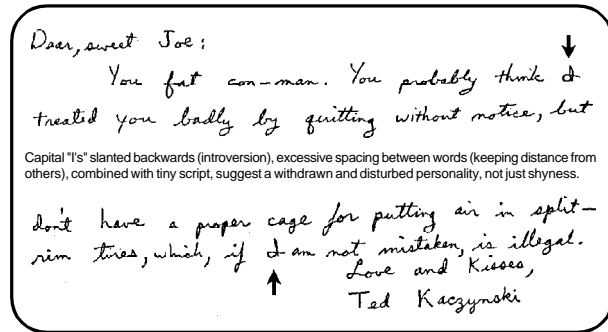 Dear, sweet Joe:
You fat con-man. You probably think I
treated you badly by quitting without notice, but
Capital "I's" slanted backwards (introversion), excessive spacing between words (keeping distance from
others), combined with tiny script, suggest a withdrawn and disturbed personality, not just shyness.
don't have a proper cage for putting air in split-
rim tires, which, if I am not mistaken, is illegal.
Love and Kisses,
Ted Kaczynski